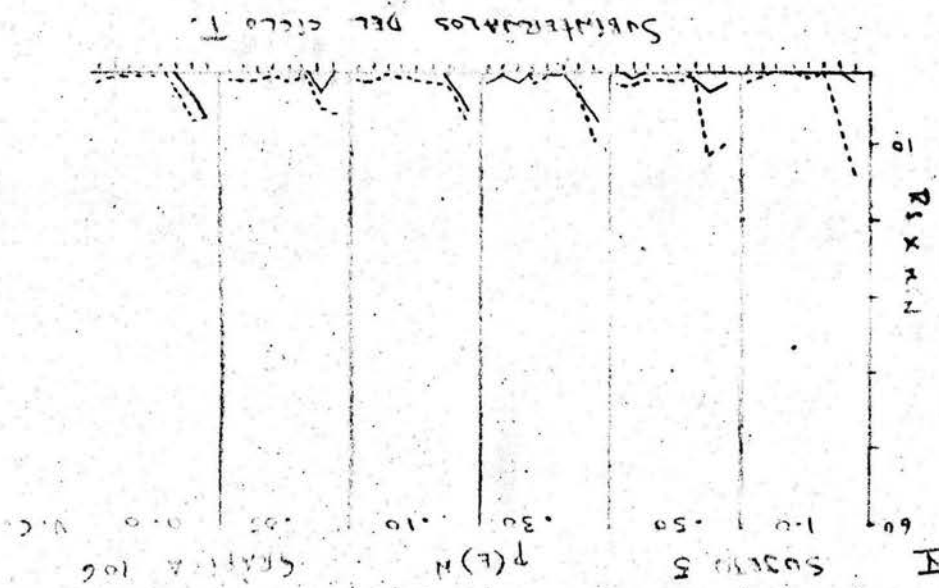 II SUJETO 5 P(E)N GRAFICA 106
60 1.0 .50 .30 .10 .05 0.0 V.C.
Rs x min
10
SUBINTERVALOS DEL CICLO T.